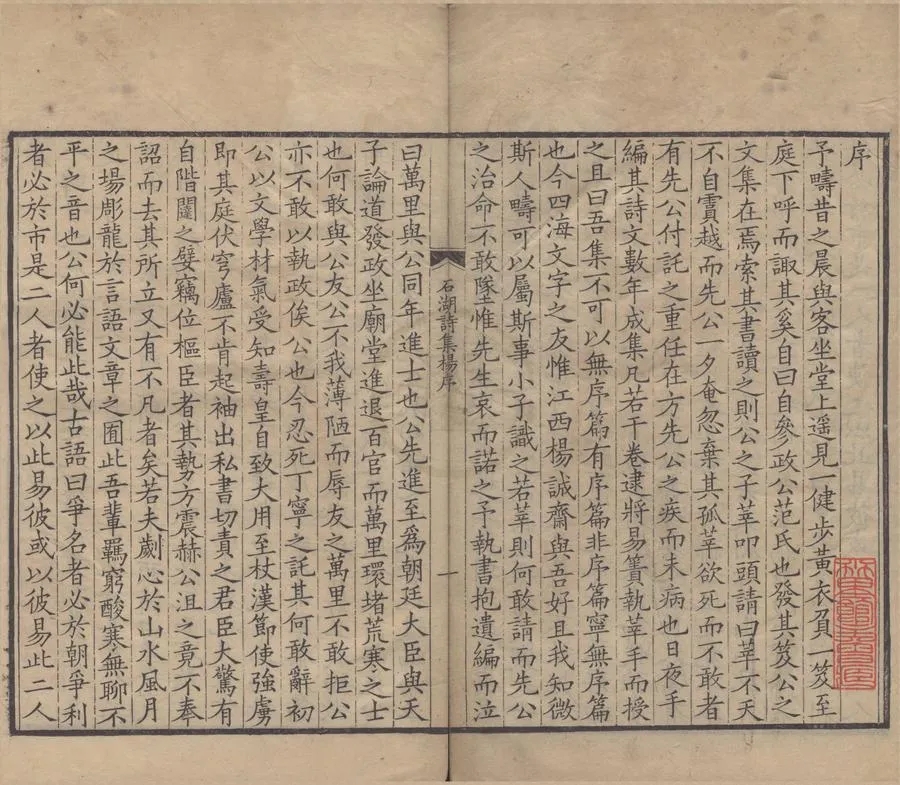 序
予疇昔之晨與客坐堂上遥見一健步黄衣負一笈至
庭下呼而諏其奚自曰自參政公范氏也發其笈公之
文集在焉索其書讀之則公之子莘叩頭請曰莘不天
不自霣越而先公一夕奄忽棄其孤莘欲死而不敢者
有先公付託之重任在方先公之疾而未病也日夜手
編其詩文數年成集凡若干卷逮將易簀執莘手而授
之且曰吾集不可以無序篇有序篇非序篇寧無序篇
也今四海文字之友惟江西楊誠齋與吾好且我知微
斯人疇可以屬斯事小子識之若莘則何敢請而先公
之治命不敢墜惟先生哀而諾之予執書抱遺編而泣
石湖詩集楊序
一
曰萬里與公同年進士也公先進至爲朝廷大臣與天
子論道發政坐廟堂進退百官而萬里環堵荒寒之士
也何敢與公友公不我薄陋而辱友之萬里不敢拒公
亦不敢以執政俟公也今忍死丁寧之託其何敢辭初
公以文學材氣受知壽皇自致大用至杖漢節使強虜
即其庭伏穹廬不肯起袖出私書切責之君臣大驚有
自階闥之嬖竊位樞臣者其勢方震赫公沮之竟不奉
詔而去其所立又有不凡者矣若夫劌心於山水風月
之場彫龍於言語文章之囿此吾輩羈窮酸寒無聊不
平之音也公何必能此哉古語曰爭名者必於朝爭利
者必於市是二人者使之以此易彼或以彼易此二人